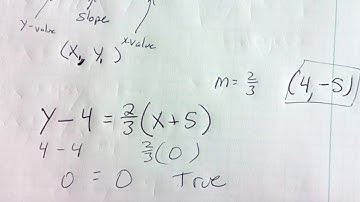 y-value slope x-value
(x, y,)
m = 2/3 (4, -5)
y - 4 = 2/3(x + 5)
4 - 4 2/3(0)
0 = 0 True